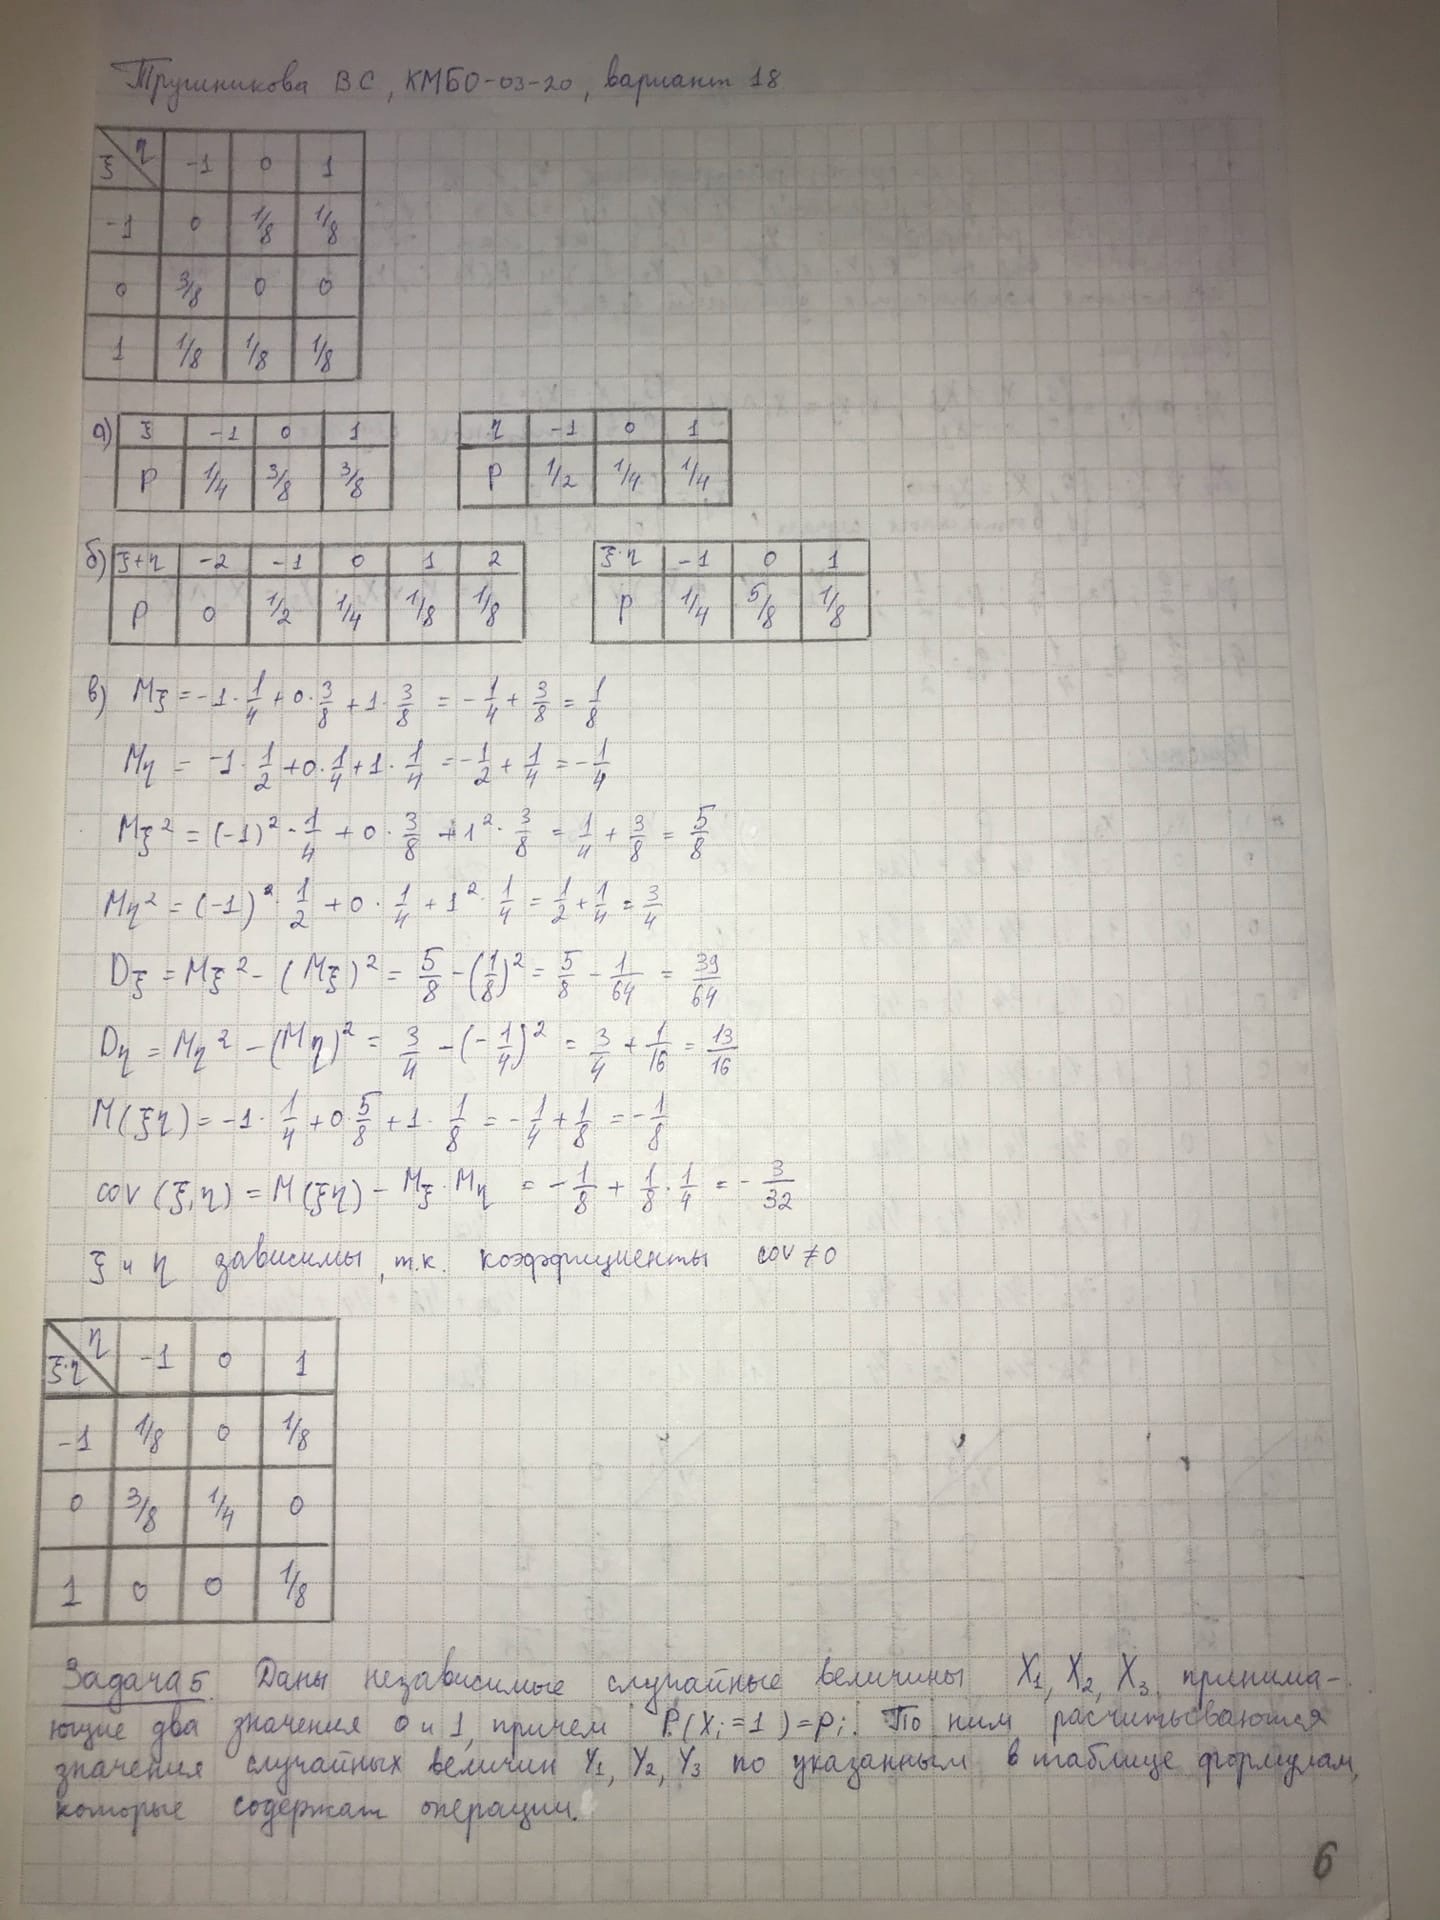 Трушникова ВС, КМБО-03-20, вариант 18
ξ \ η -1 0 1
-1 0 1/8 1/8
0 3/8 0 0
1 1/8 1/8 1/8
а) ξ -1 0 1 η -1 0 1
P 1/4 3/8 3/8 P 1/2 1/4 1/4
б) ξ+η -2 -1 0 1 2 ξ·η -1 0 1
P 0 1/2 1/4 1/8 1/8 P 1/4 5/8 1/8
в) Mξ = -1·1/4 + 0·3/8 + 1·3/8 = -1/4 + 3/8 = 1/8
Mη = -1·1/2 + 0·1/4 + 1·1/4 = -1/2 + 1/4 = -1/4
Mξ² = (-1)²·1/4 + 0·3/8 + 1²·3/8 = 1/4 + 3/8 = 5/8
Mη² = (-1)²·1/2 + 0·1/4 + 1²·1/4 = 1/2 + 1/4 = 3/4
Dξ = Mξ² - (Mξ)² = 5/8 - (1/8)² = 5/8 - 1/64 = 39/64
Dη = Mη² - (Mη)² = 3/4 - (-1/4)² = 3/4 + 1/16 = 13/16
M(ξη) = -1·1/4 + 0·5/8 + 1·1/8 = -1/4 + 1/8 = -1/8
cov(ξ,η) = M(ξη) - Mξ·Mη = -1/8 + 1/8·1/4 = -3/32
ξ и η зависимы, т.к. коэффициенты cov ≠ 0
ξ·η \ η -1 0 1
-1 1/8 0 1/8
0 3/8 1/4 0
1 0 0 1/8
Задача 5. Даны независимые случайные величины X₁, X₂, X₃, принима-
ющие два значения 0 и 1, причем P(Xᵢ=1)=pᵢ. По ним расчитываются
значения случайных величин Y₁, Y₂, Y₃ по указанным в таблице формулам,
которые содержат операции.
6